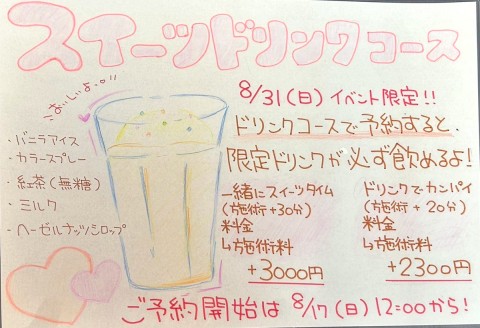 スイーツドリンクコース
おいしいよ。
8/31(日)イベント限定!!
ドリンクコースで予約すると、
限定ドリンクが必ず飲めるよ!
・バニラアイス
・カラースプレー
・紅茶(無糖)
・ミルク
・ヘーゼルナッツシロップ
一緒にスイーツタイム
(施術+30分)
料金
↳施術料
+3000円
ドリンクでカンパイ
(施術+20分)
料金
↳施術料
+2300円
ご予約開始は8/17(日)12:00から!